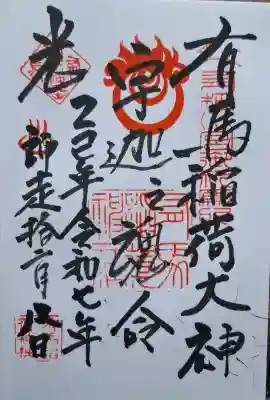 有馬稲荷大神
宇迦之魂命
光
乙巳年令和七年
師走拾二月八日